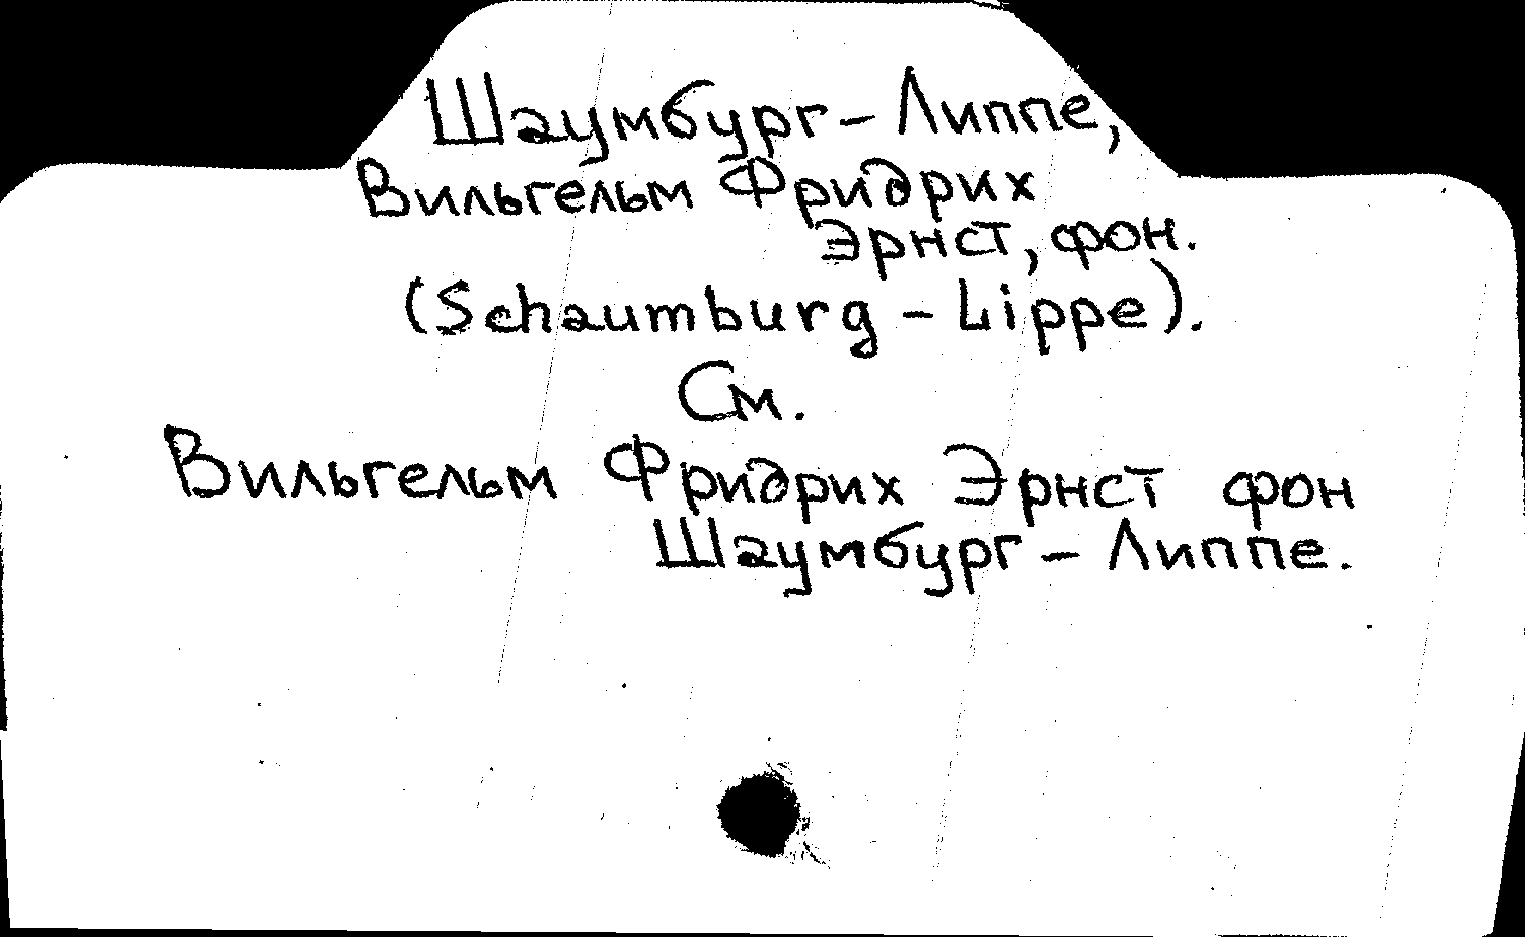 Шаумбург-Липпе,
Вильгельм Фридрих
Эрнст, фон.
(Schaumburg-Lippe).
См.
Вильгельм Фридрих Эрнст фон
Шаумбург-Липпе.